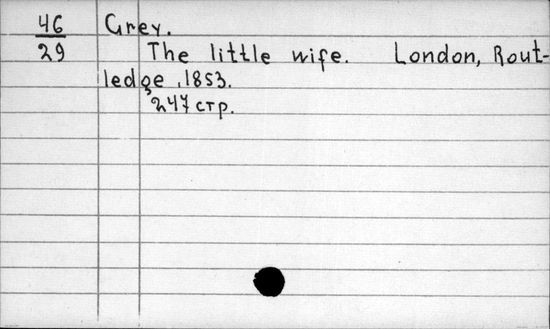 46 Grey.
29 The little wife. London, Rout-
ledge, 1853.
247 стр.